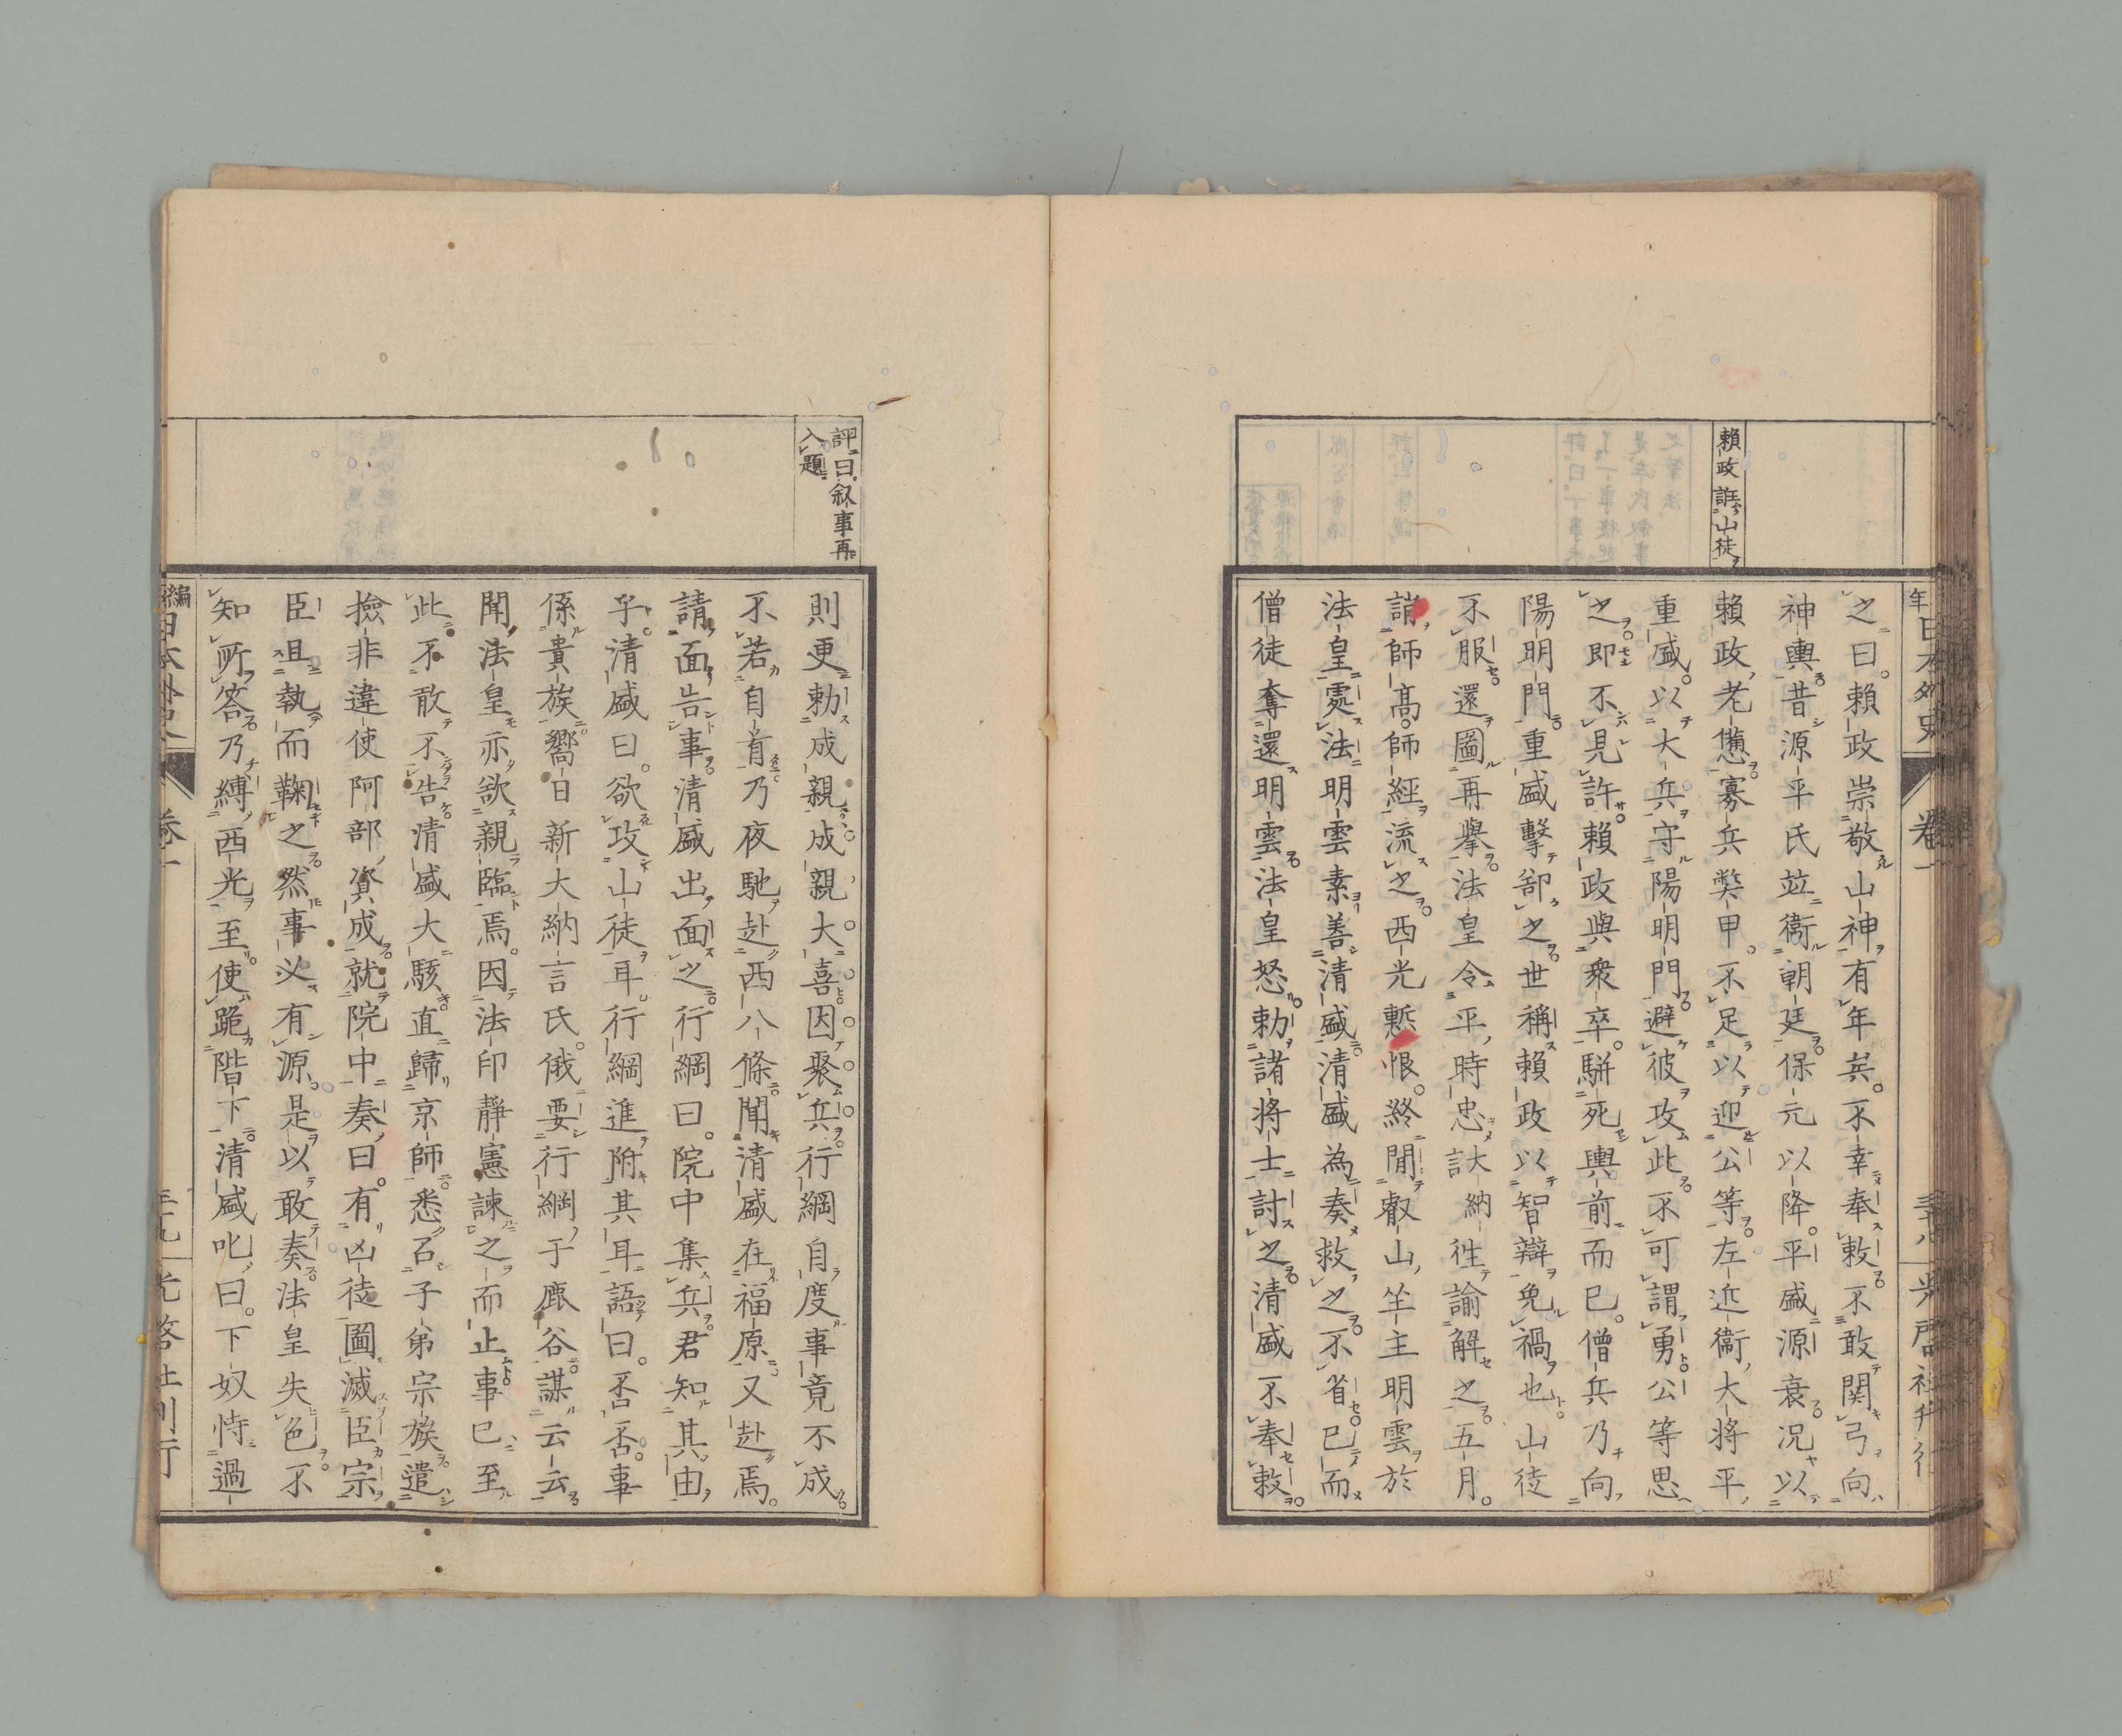 頼政誑山徒
之曰。頼政崇敬山神有年矣。不幸奉敕不敢関弓向
神輿昔源平氏並衞朝廷保元以降。平盛源衰況以
頼政老憊寡兵獘甲。不足以迎公等左近衞大将平
重盛。以大兵守陽明門避彼攻此不可謂勇公等思
之即不見許頼政與衆卒。駢死輿前而已。僧兵乃向
陽明門重盛擊郤之世稱頼政以智辯免禍也山徒
不服還圖再擧法皇令平時忠大納言往諭解之五月。
誚師高。師経流之西光慙恨。終間叡山坐主明雲於
法皇處法明雲素善清盛清盛為奏救之不省已而
僧徒奪還明雲法皇怒勅諸将士討之清盛不奉敕
評曰叙事再
入題
則更勅成親成親大喜因聚兵行綱自度事竟不成
不若自首乃夜馳赴西八條聞清盛在福原又赴焉。
請面告事清盛出面之行綱曰。院中集兵君知其由
乎。清盛曰。欲攻山徒耳。行綱進附其耳語曰。否否。事
係貴族嚮日新大納言氏。俄要行綱于鹿谷謀云云
聞法皇亦欲親臨焉。因法印靜憲諫之而止事已至
此不敢不告清盛大駭直歸京師悉召子弟宗族遣
撿非違使阿部資成就院中奏曰。有凶徒圖滅臣宗
臣且執而鞠之然事必有源。是以敢奏法皇失色不
知所答乃縛西光至使跪階下清盛叱曰。下奴恃過